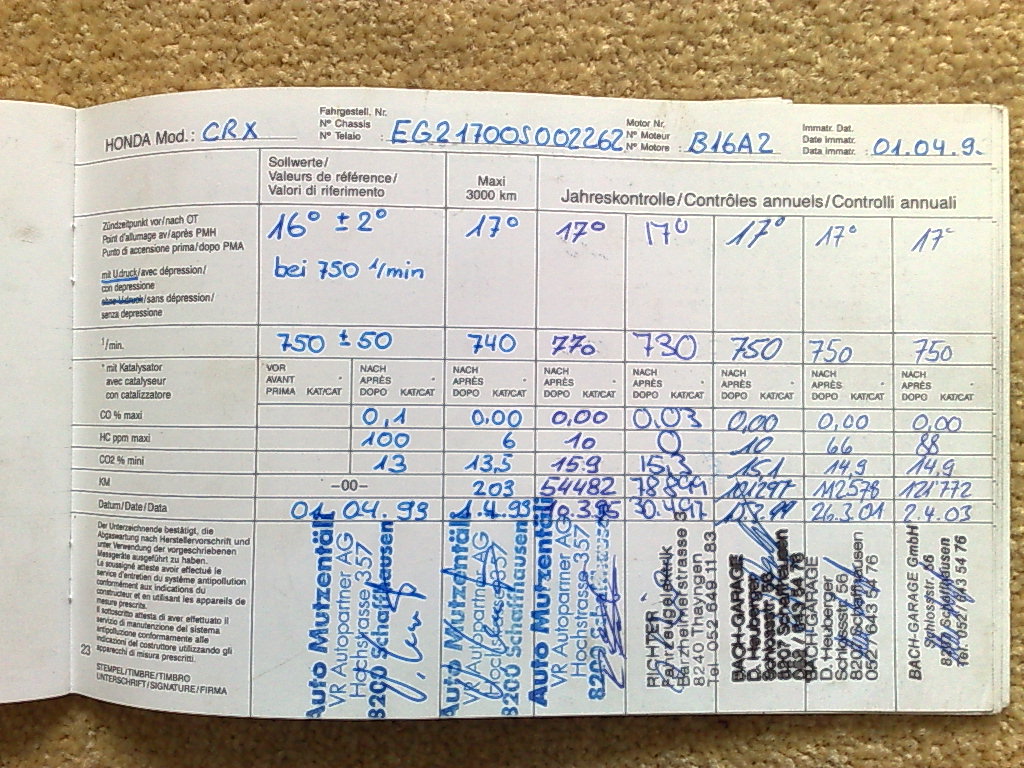 HONDA Mod.: CRX
Fahrgestell. Nr.
N° Chassis
N° Telaio : EG21700S002262
Motor Nr.
N° Moteur
N° Motore : B16A2
Immatr. Dat.
Date immatr.
Data immatr. : 01.04.9.
Sollwerte/
Valeurs de référence/
Valori di riferimento
Maxi
3000 km
Jahreskontrolle/Contrôles annuels/Controlli annuali
Zündzeitpunkt vor/nach OT
Point d'allumage av/après PMH
Punto di accensione prima/dopo PMA
mit U.druck/avec dépression/
con depressione
ohne U.druck/sans dépression/
senza depressione
16° ± 2° 17° 17° 17° 17° 17° 17°
bei 750 1/min
1/min. 750 ± 50 740 770 730 750 750 750
* mit Katalysator
avec catalyseur
con catalizzatore
VOR
AVANT
PRIMA KAT/CAT
NACH
APRÈS
DOPO KAT/CAT
NACH
APRÈS
DOPO KAT/CAT
NACH
APRÈS
DOPO KAT/CAT
NACH
APRÈS
DOPO KAT/CAT
NACH
APRÈS
DOPO KAT/CAT
NACH
APRÈS
DOPO KAT/CAT
NACH
APRÈS
DOPO KAT/CAT
CO % maxi 0,1 0.00 0,00 0.03 0,00 0,00 0,00
HC ppm maxi 100 6 10 0 10 66 88
CO2 % mini 13 13,5 15.9 15,3 15.1 14,9 14,9
KM –00– 203 54482 101297 112578 121'772
Datum/Date/Data 01. 04. 93 1.4.93 30.4.97 26.3.01 2.4.03
Der Unterzeichnende bestätigt, die
Abgaswartung nach Herstellervorschrift und
unter Verwendung der vorgeschriebenen
Messgeräte ausgeführt zu haben.
Le soussigné atteste avoir effectué le
service d'entretien du système antipollution
conformément aux indications du
constructeur et en utilisant les appareils de
mesure prescrits.
Il sottoscritto attesta di aver effettuato il
servizio di manutenzione del sistema
antipollution conformamente alle
indicazioni del costruttore utilizzando gli
apparecchi di misura prescritti.
23
STEMPEL/TIMBRE/TIMBRO
UNTERSCHRIFT/SIGNATURE/FIRMA
Auto Mutzentäli
VR Autopartner AG
Hochstrasse 357
8200 Schaffhausen
Auto Mutzentäli
VR Autopartner AG
8200 Schaffhausen
Auto Mutzentäli
VR Autopartner AG
Hochstrasse 357
8200
RICHTER
Fahrzeugtechnik
Barzheimerstrasse 3
8240 Thayngen
Tel. 052 649 11 83
BACH-GARAGE
D. Heuberger
BACH-GARAGE
D. Heuberger
Schlossstr. 56
052 / 643 54 76
BACH-GARAGE GmbH
Schlossstr. 56
Tel. 052 / 643 54 76